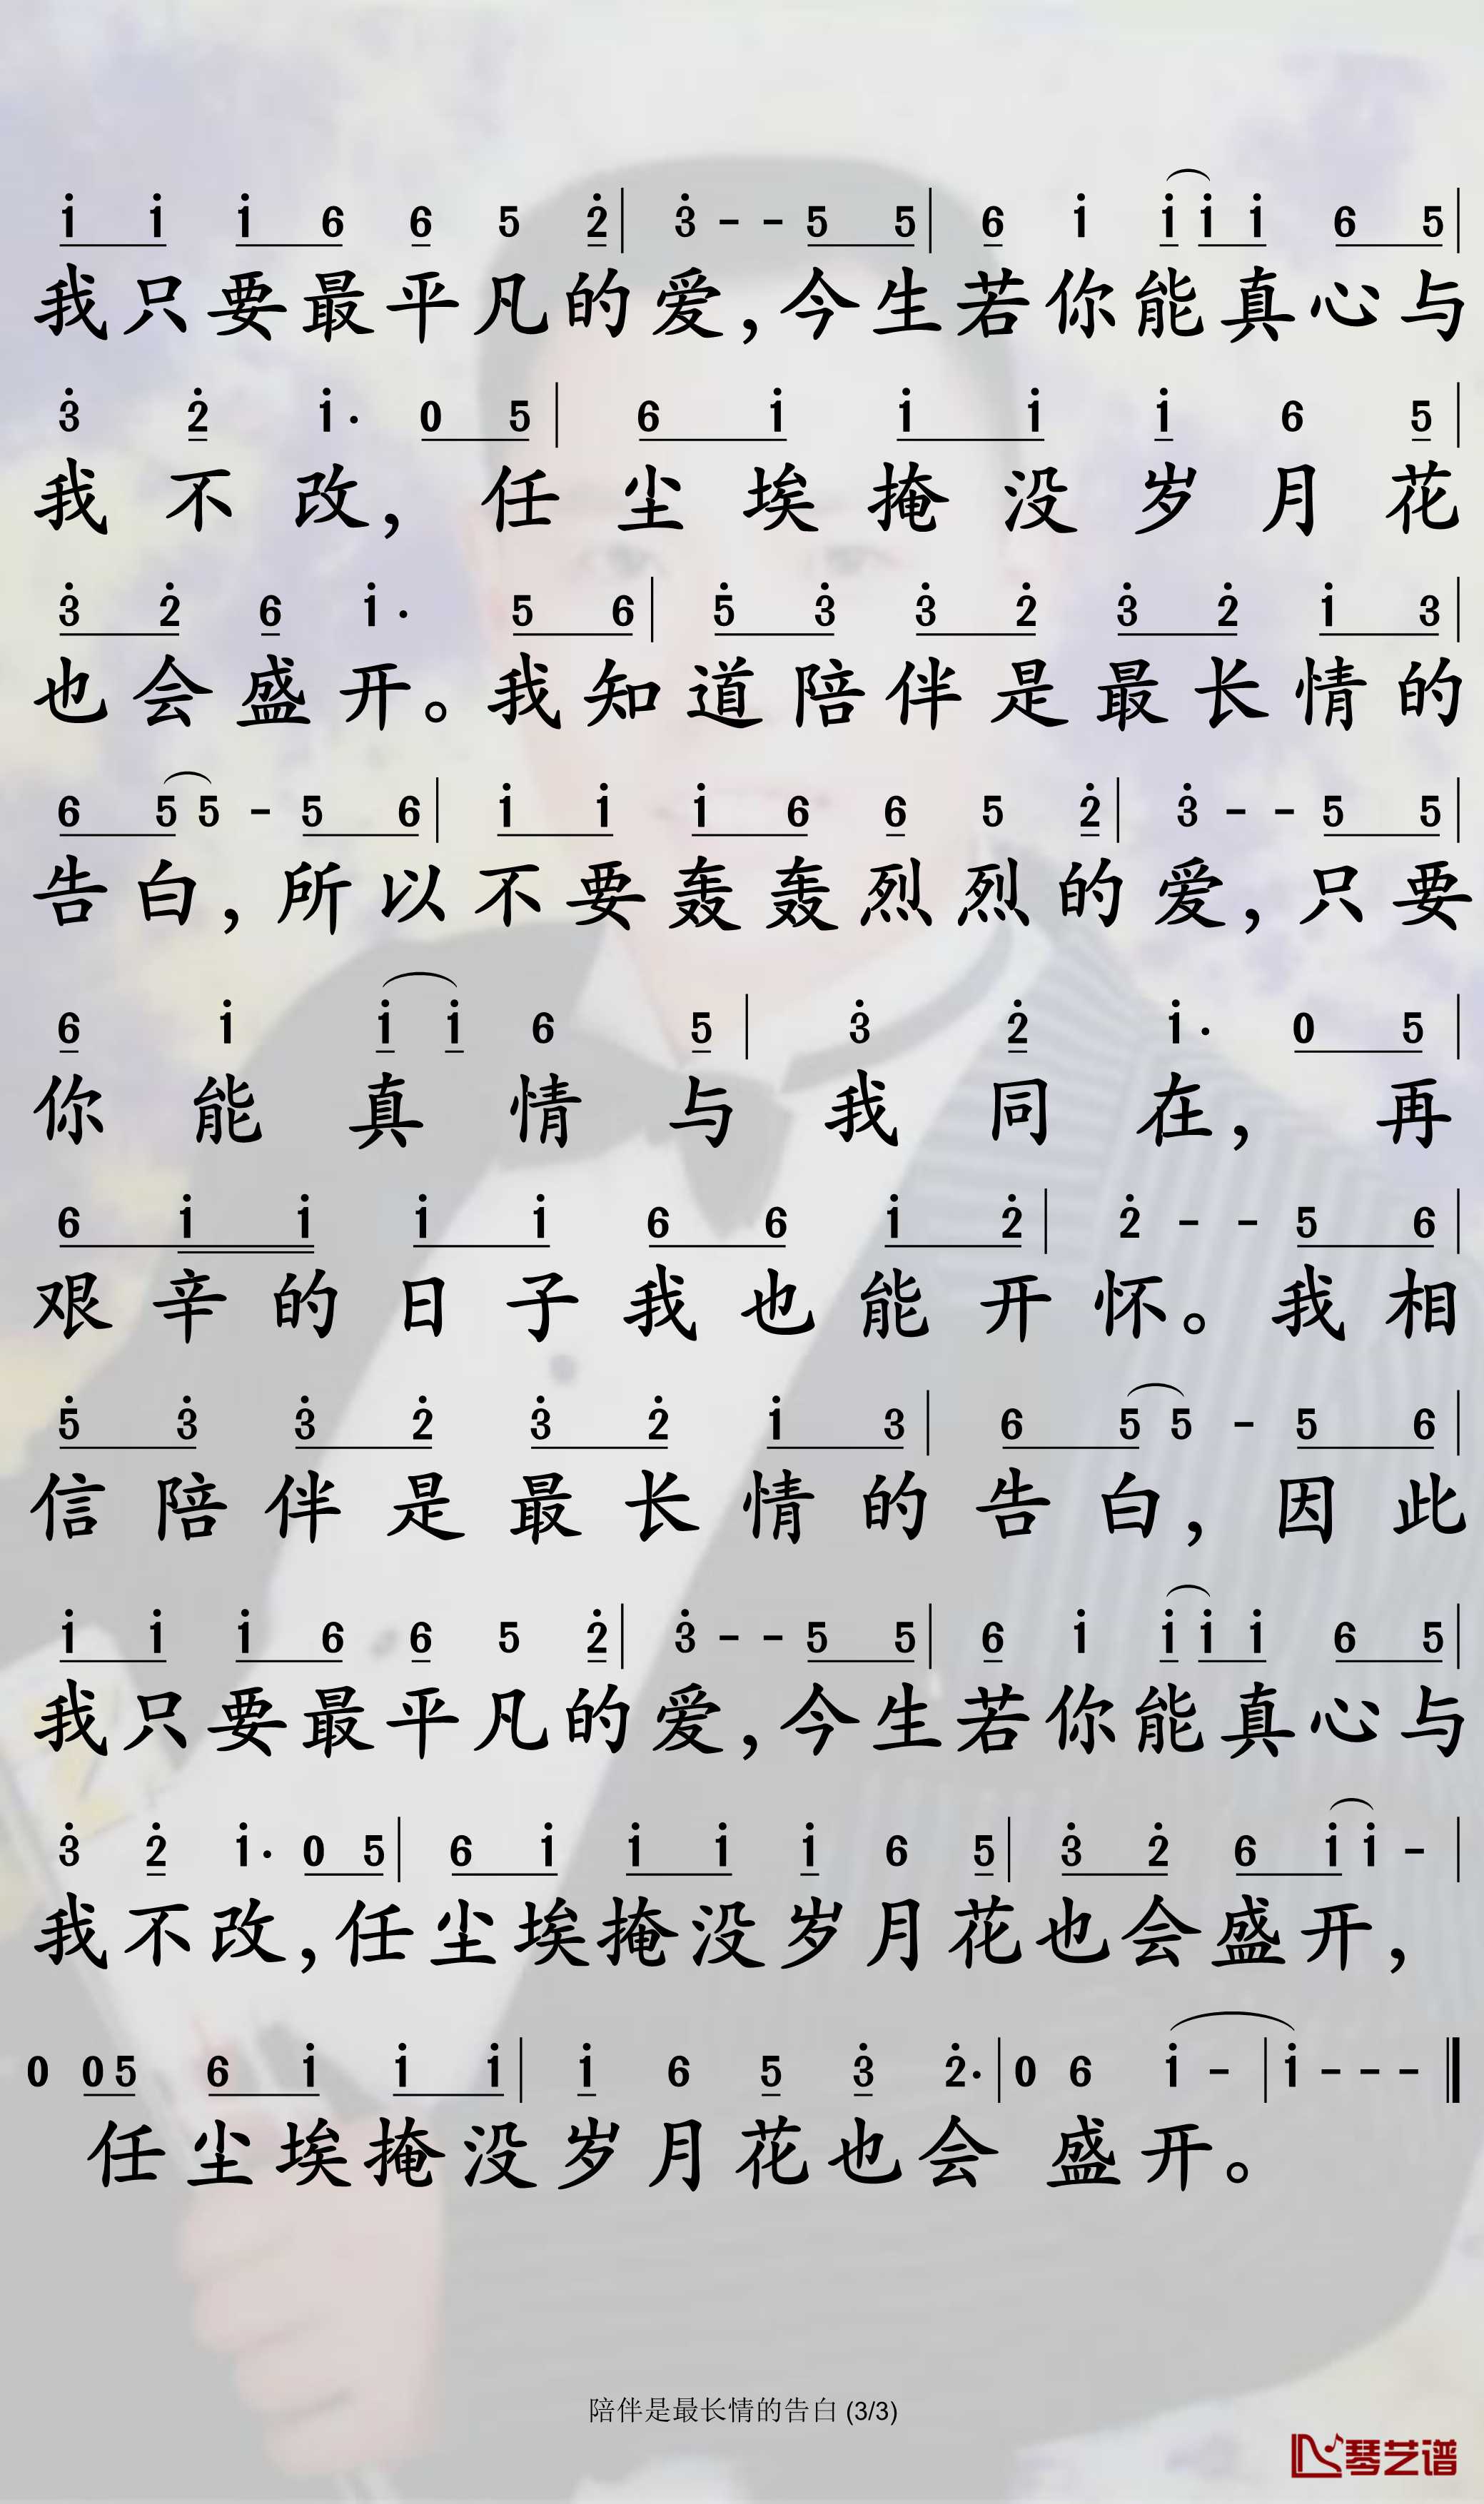 i i i 6 6 5 2̇ | 3̇ - - 5 5 | 6 i i i i 6 5 |
我只要最平凡的爱,今生若你能真心与
3̇ 2̇ i · 0 5 | 6 i i i i 6 5 |
我不改,任尘埃掩没岁月花
3̇ 2̇ 6 i · 5 6 | 5̇ 3̇ 3̇ 2̇ 3̇ 2̇ i 3 |
也会盛开。我知道陪伴是最长情的
6 5 5 - 5 6 | i i i 6 6 5 2̇ | 3̇ - - 5 5 |
告白,所以不要轰轰烈烈的爱,只要
6 i i i 6 5 | 3̇ 2̇ i · 0 5 |
你能真情与我同在,再
6 i i i i 6 6 i 2̇ | 2̇ - - 5 6 |
艰辛的日子我也能开怀。我相
5̇ 3̇ 3̇ 2̇ 3̇ 2̇ i 3 | 6 5 5 - 5 6 |
信陪伴是最长情的告白,因此
i i i 6 6 5 2̇ | 3̇ - - 5 5 | 6 i i i i 6 5 |
我只要最平凡的爱,今生若你能真心与
3̇ 2̇ i · 0 5 | 6 i i i i 6 5 | 3̇ 2̇ 6 i i - |
我不改,任尘埃掩没岁月花也会盛开,
0 0 5 6 i i i | i 6 5 3̇ 2̇ · | 0 6 i - | i - - - ‖
任尘埃掩没岁月花也会盛开。
陪伴是最长情的告白 (3/3)
琴艺谱